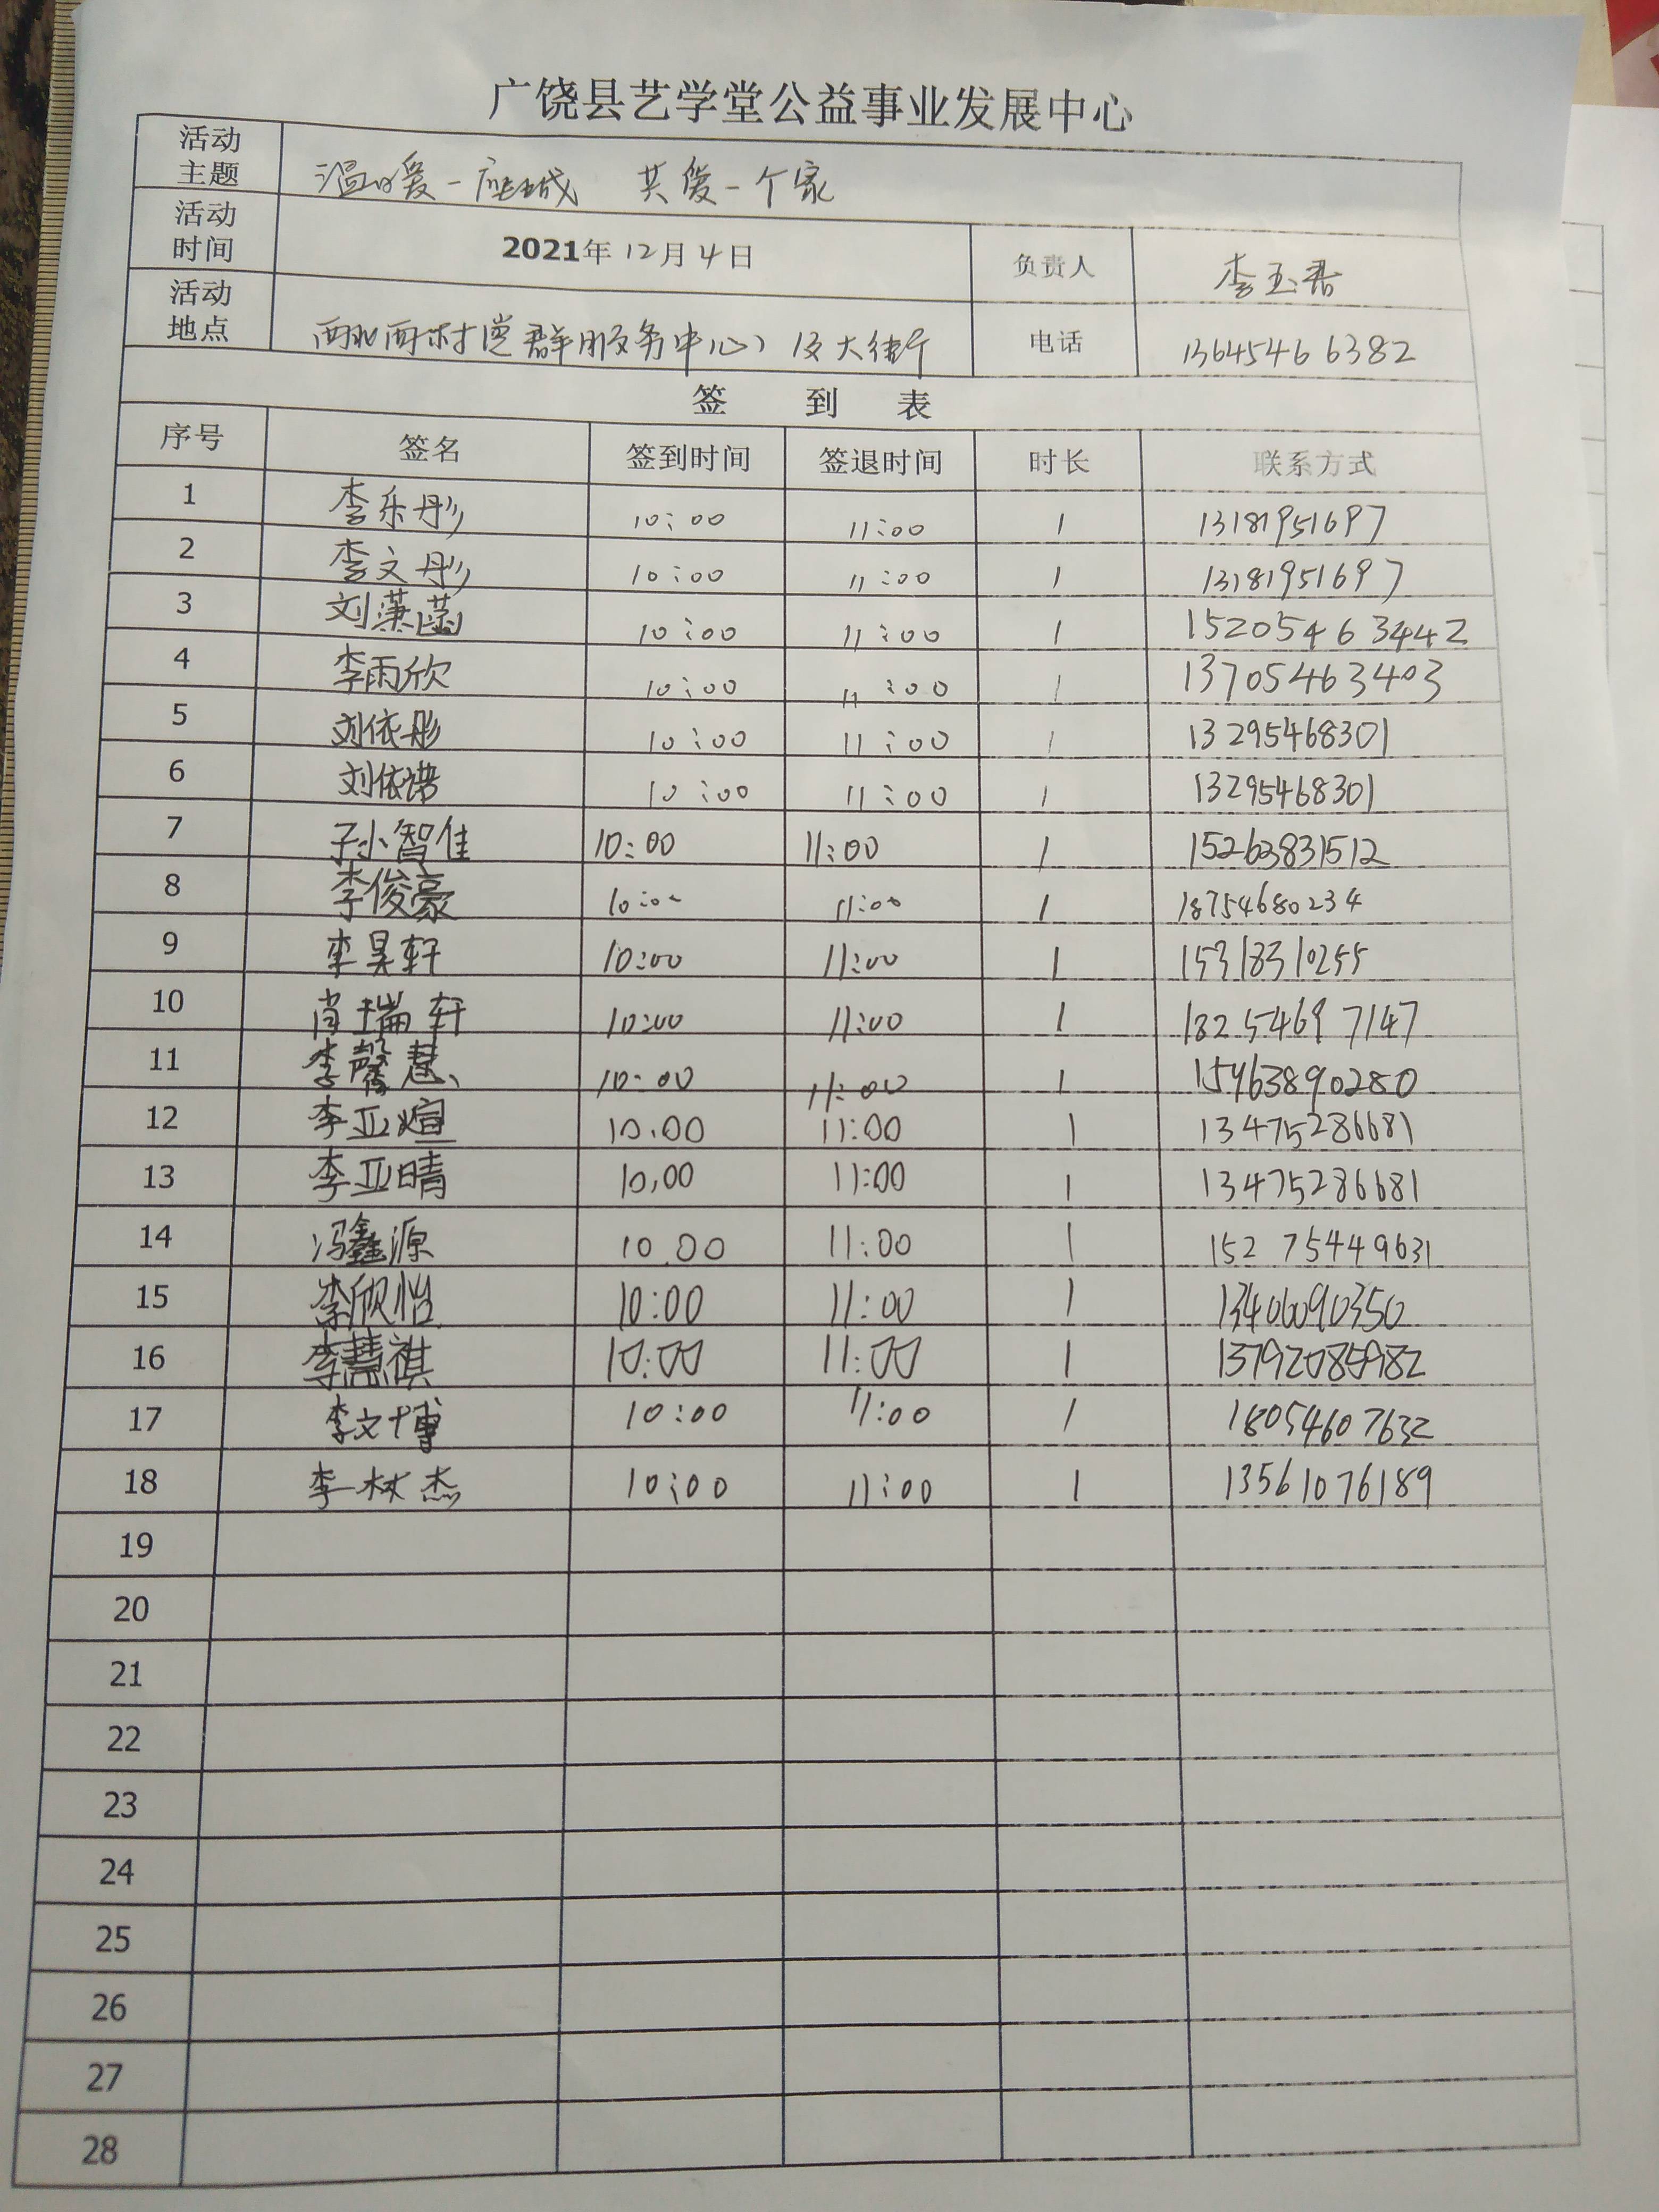 广饶县艺学堂公益事业发展中心
活动主题 温暖一座城 共爱一个家
活动时间 2021年12月4日 负责人 李玉
活动地点 西北西村党群服务中心 及大街 电话 13645466382
签 到 表
序号 签名 签到时间 签退时间 时长 联系方式
1 李乐彤 10:00 11:00 1 13181951697
2 李文彤 10:00 11:00 1 13181951697
3 刘潇菡 10:00 11:00 1 15205463442
4 李雨欣 10:00 11:00 1 13705463403
5 刘依彤 10:00 11:00 1 13295468301
6 刘依诺 10:00 11:00 1 13295468301
7 孙智佳 10:00 11:00 1 15263831512
8 李俊豪 10:00 11:00 1 18754680234
9 李昊轩 10:00 11:00 1 15318310255
10 肖瑞轩 10:00 11:00 1 18254697147
11 李馨慧 10:00 11:00 1 15463890280
12 李亚煊 10.00 11:00 1 13475286681
13 李亚晴 10,00 11:00 1 13475286681
14 冯鑫源 10.00 11:00 1 152 75449631
15 李欣怡 10:00 11:00 1 13406090350
16 李慧祺 10:00 11:00 1 13792085982
17 李文博 10:00 11:00 1 18054607632
18 李林杰 10:00 11:00 1 13561076189
19
20
21
22
23
24
25
26
27
28